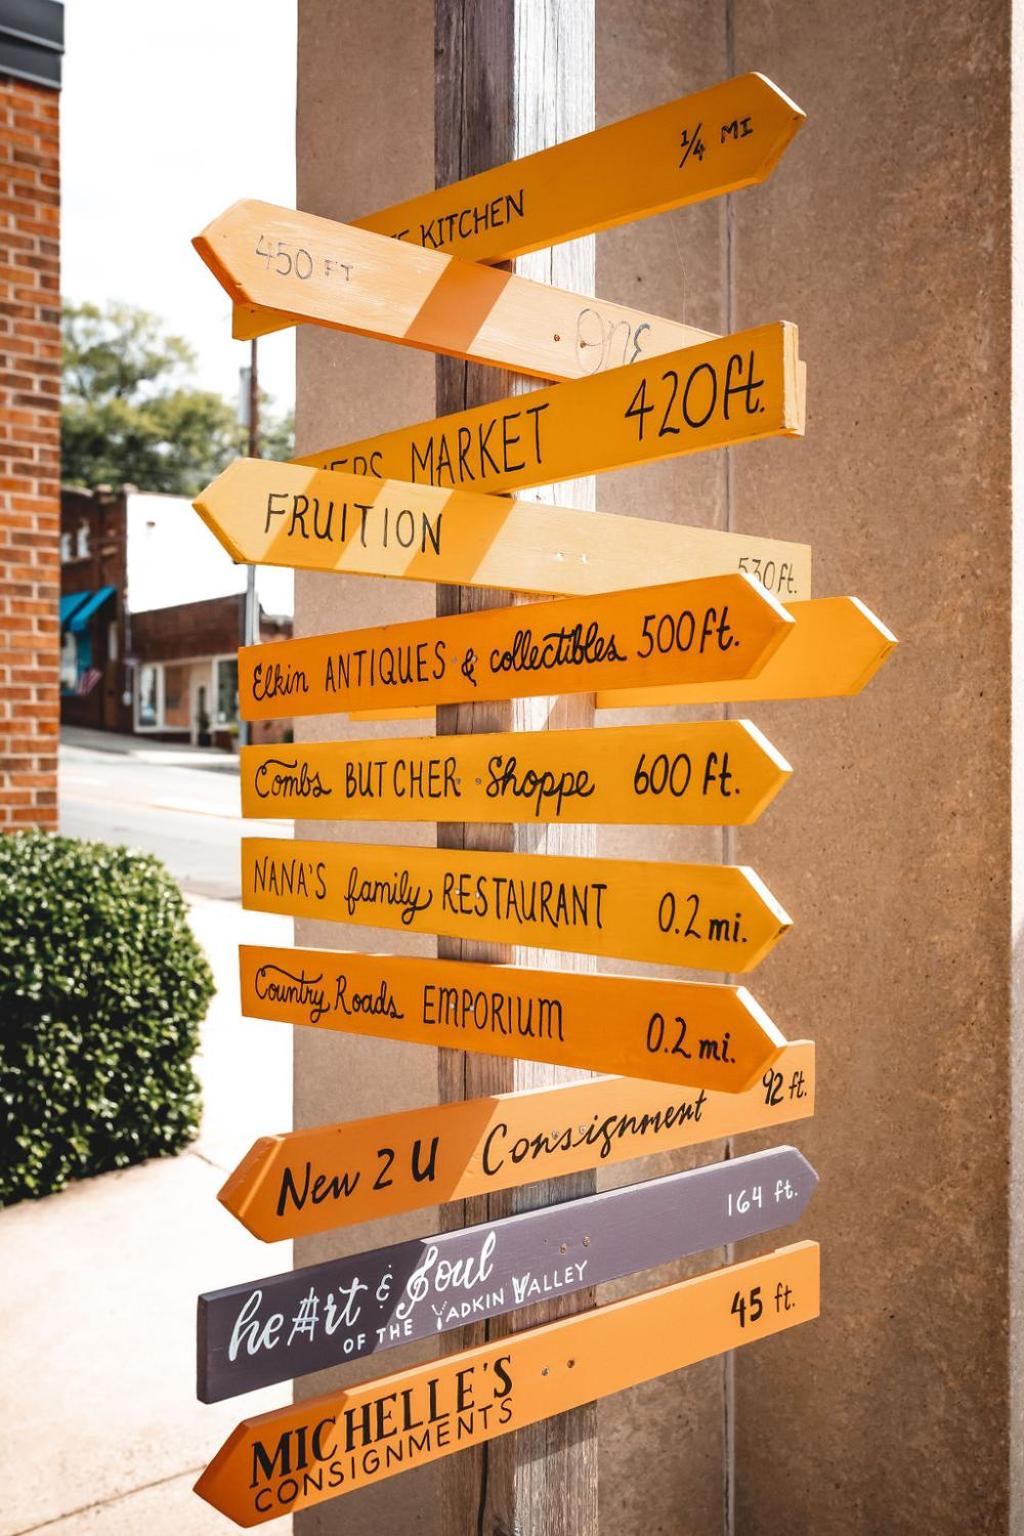 KITCHEN 1/4 MI
450 FT ONE
MARKET 420ft.
FRUITION 530 ft.
Elkin ANTIQUES & collectibles 500ft.
Combs BUTCHER Shoppe 600 ft.
NANA'S family RESTAURANT 0.2 mi.
Country Roads EMPORIUM 0.2 mi.
New 2 U Consignment 92 ft.
he#rt & Soul 164 ft.
OF THE YADKIN VALLEY
MICHELLE'S 45 ft.
CONSIGNMENTS